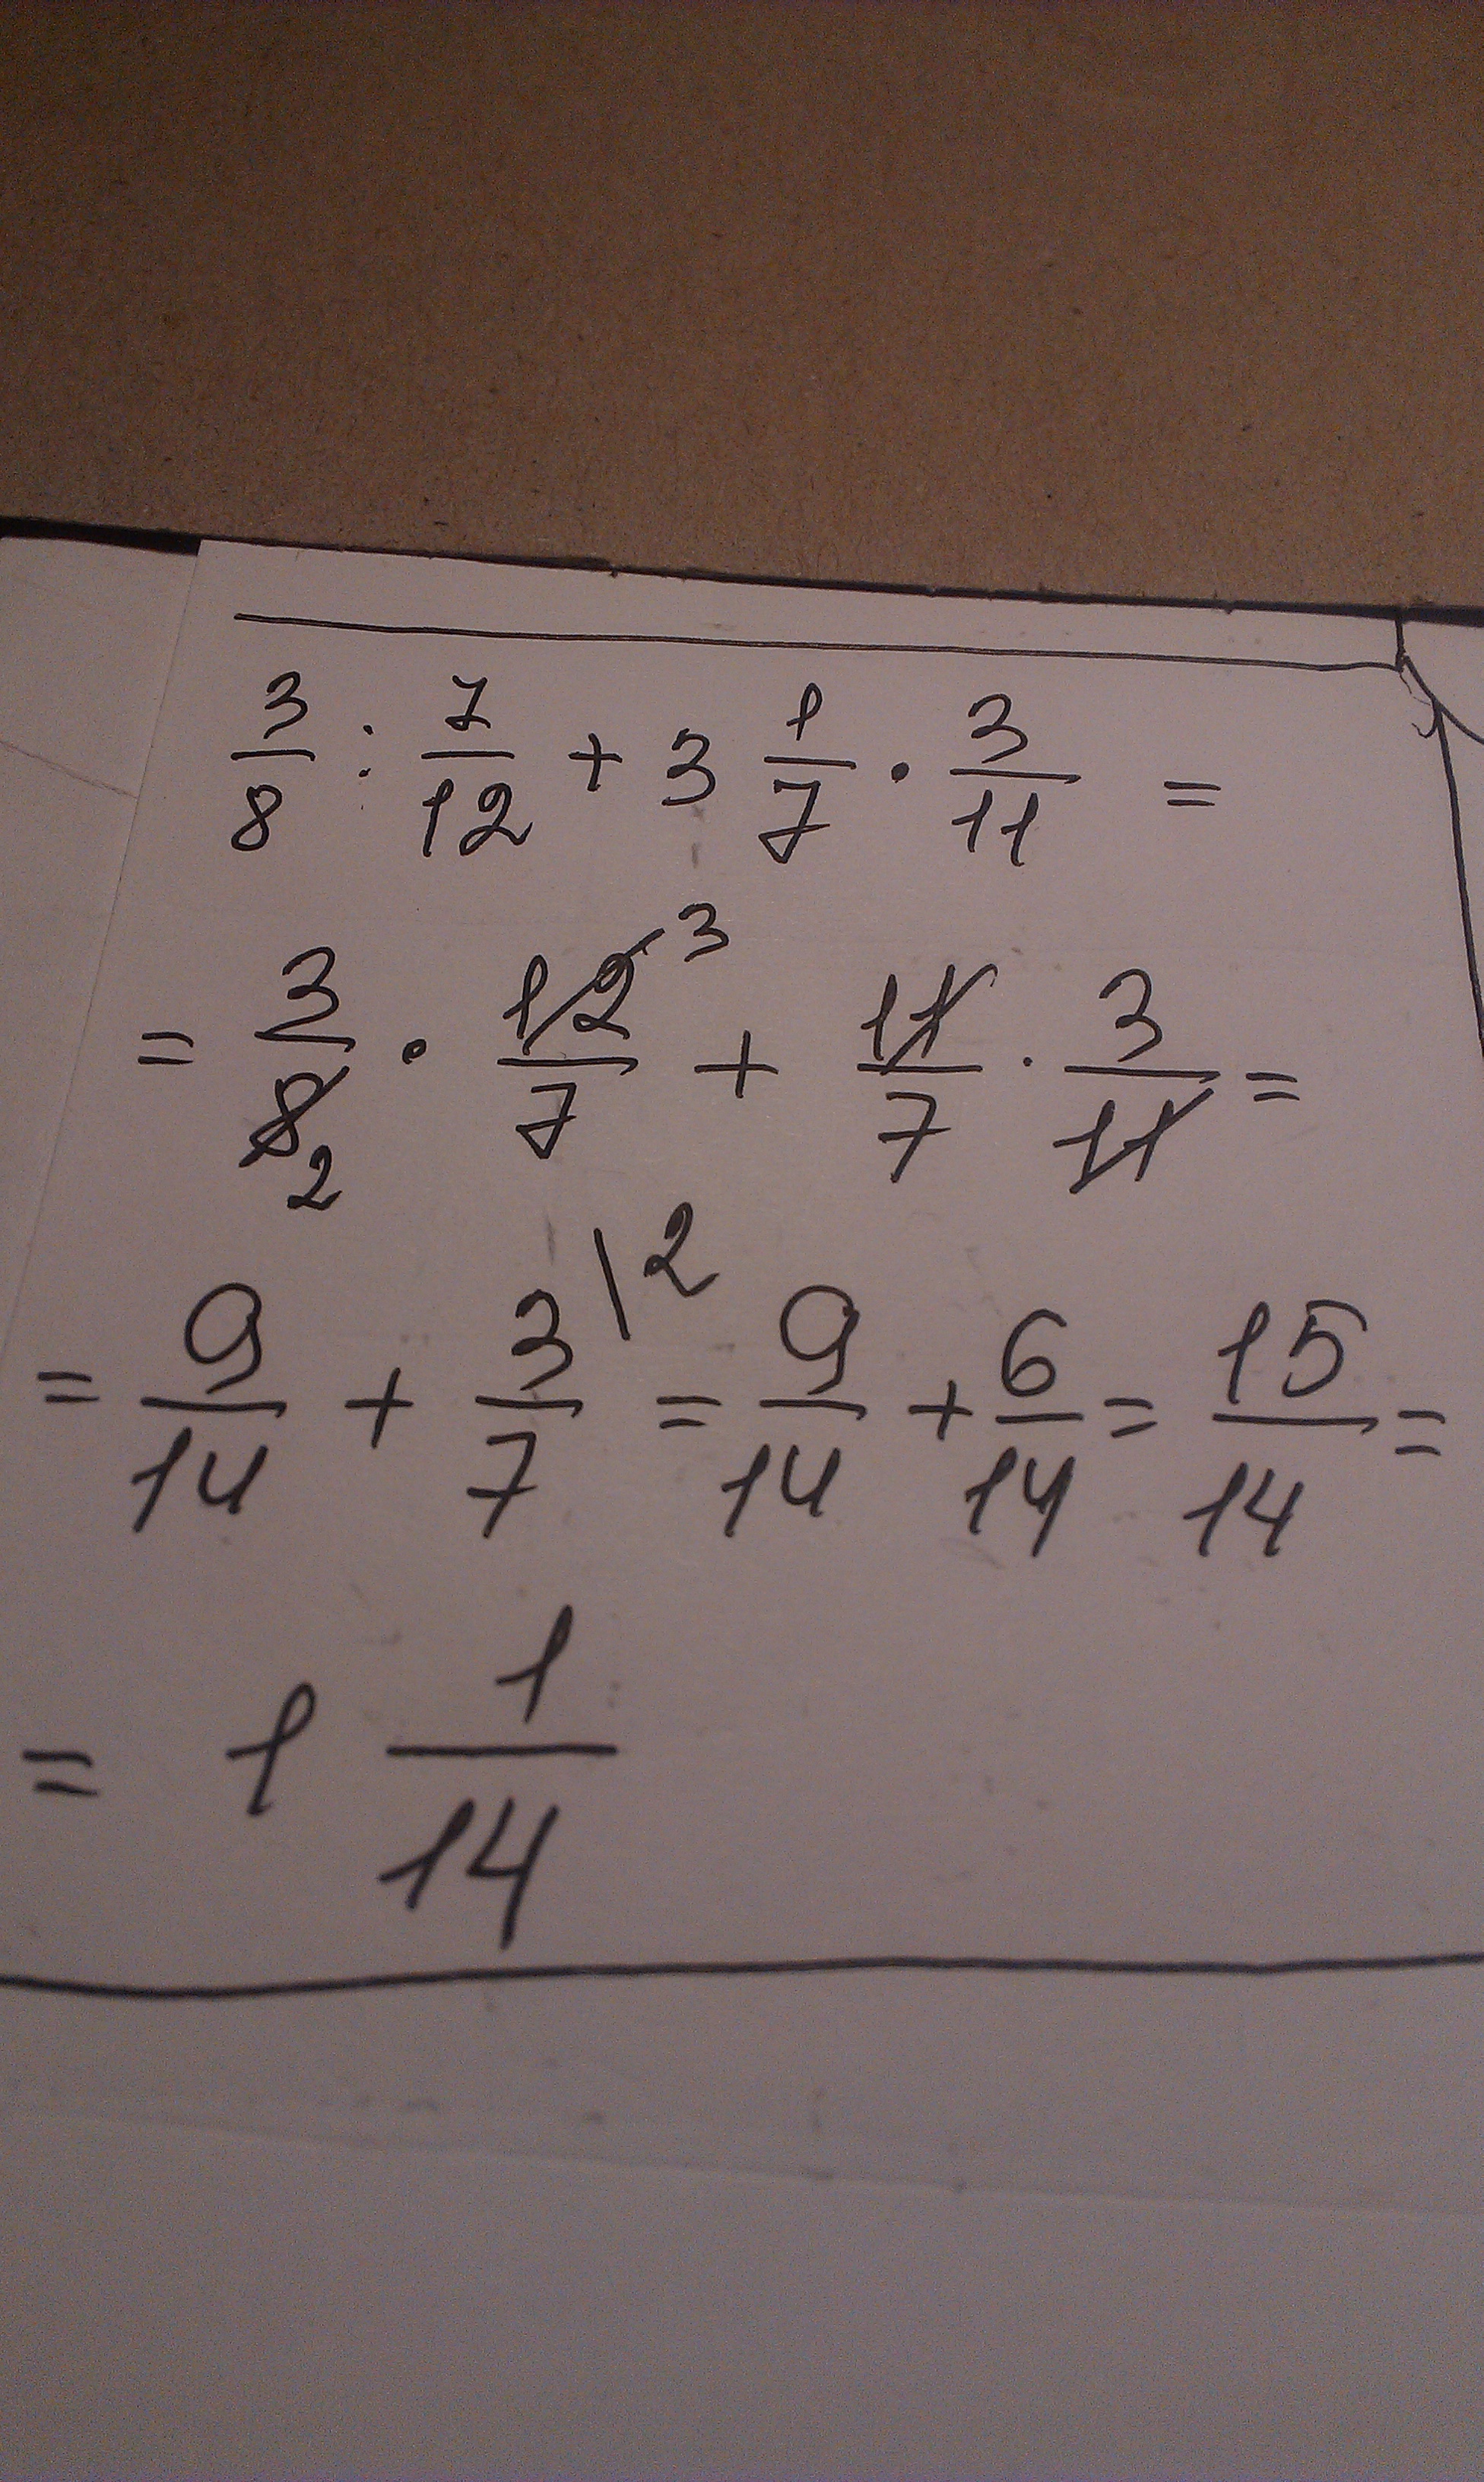 3/8 : 7/12 + 3 1/7 · 3/11 =
= 3/8 2 · 12 3/7 + 11/7 · 3/11 =
= 9/14 + 3/7 \2 = 9/14 + 6/14 = 15/14 =
= 1 1/14